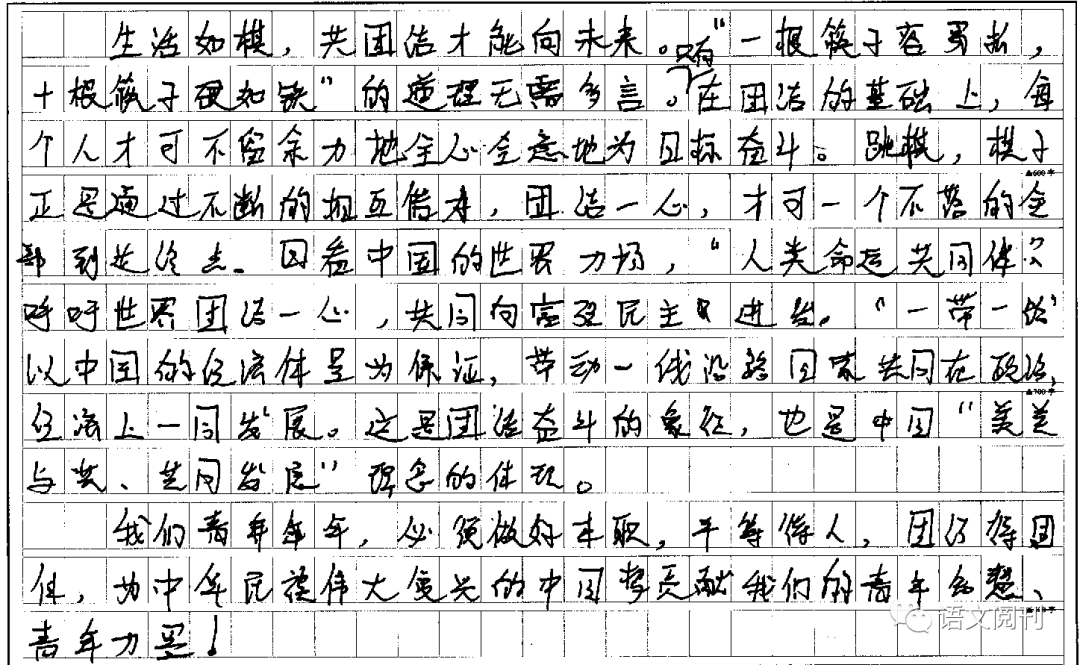 生活如棋，共团结才能向未来。只有“一根筷子容易折，
十根筷子硬如铁”的道理无需多言。在团结的基础上，每
个人才可不留余力地全心全意地为目标奋斗。跳棋，棋子
▲600字
正是通过不断的相互借力，团结一心，才可一个不落的全
部到达终点。因着中国的世界力场，“人类命运共同体”
呼吁世界团结一心，共同向富强民主进发。“一带一路”
以中国的经济体量为保证，带动一线沿路国家共同在政治，
▲700字
经济上一同发展。这是团结奋斗的象征，也是中国“美美
与共、共同发展”理念的体现。
我们青年年年，必须做好本职，平等待人，团结得团
体，为中华民族伟大复兴的中国梦贡献我们的青年智慧、
青年力量！
语文阅刊